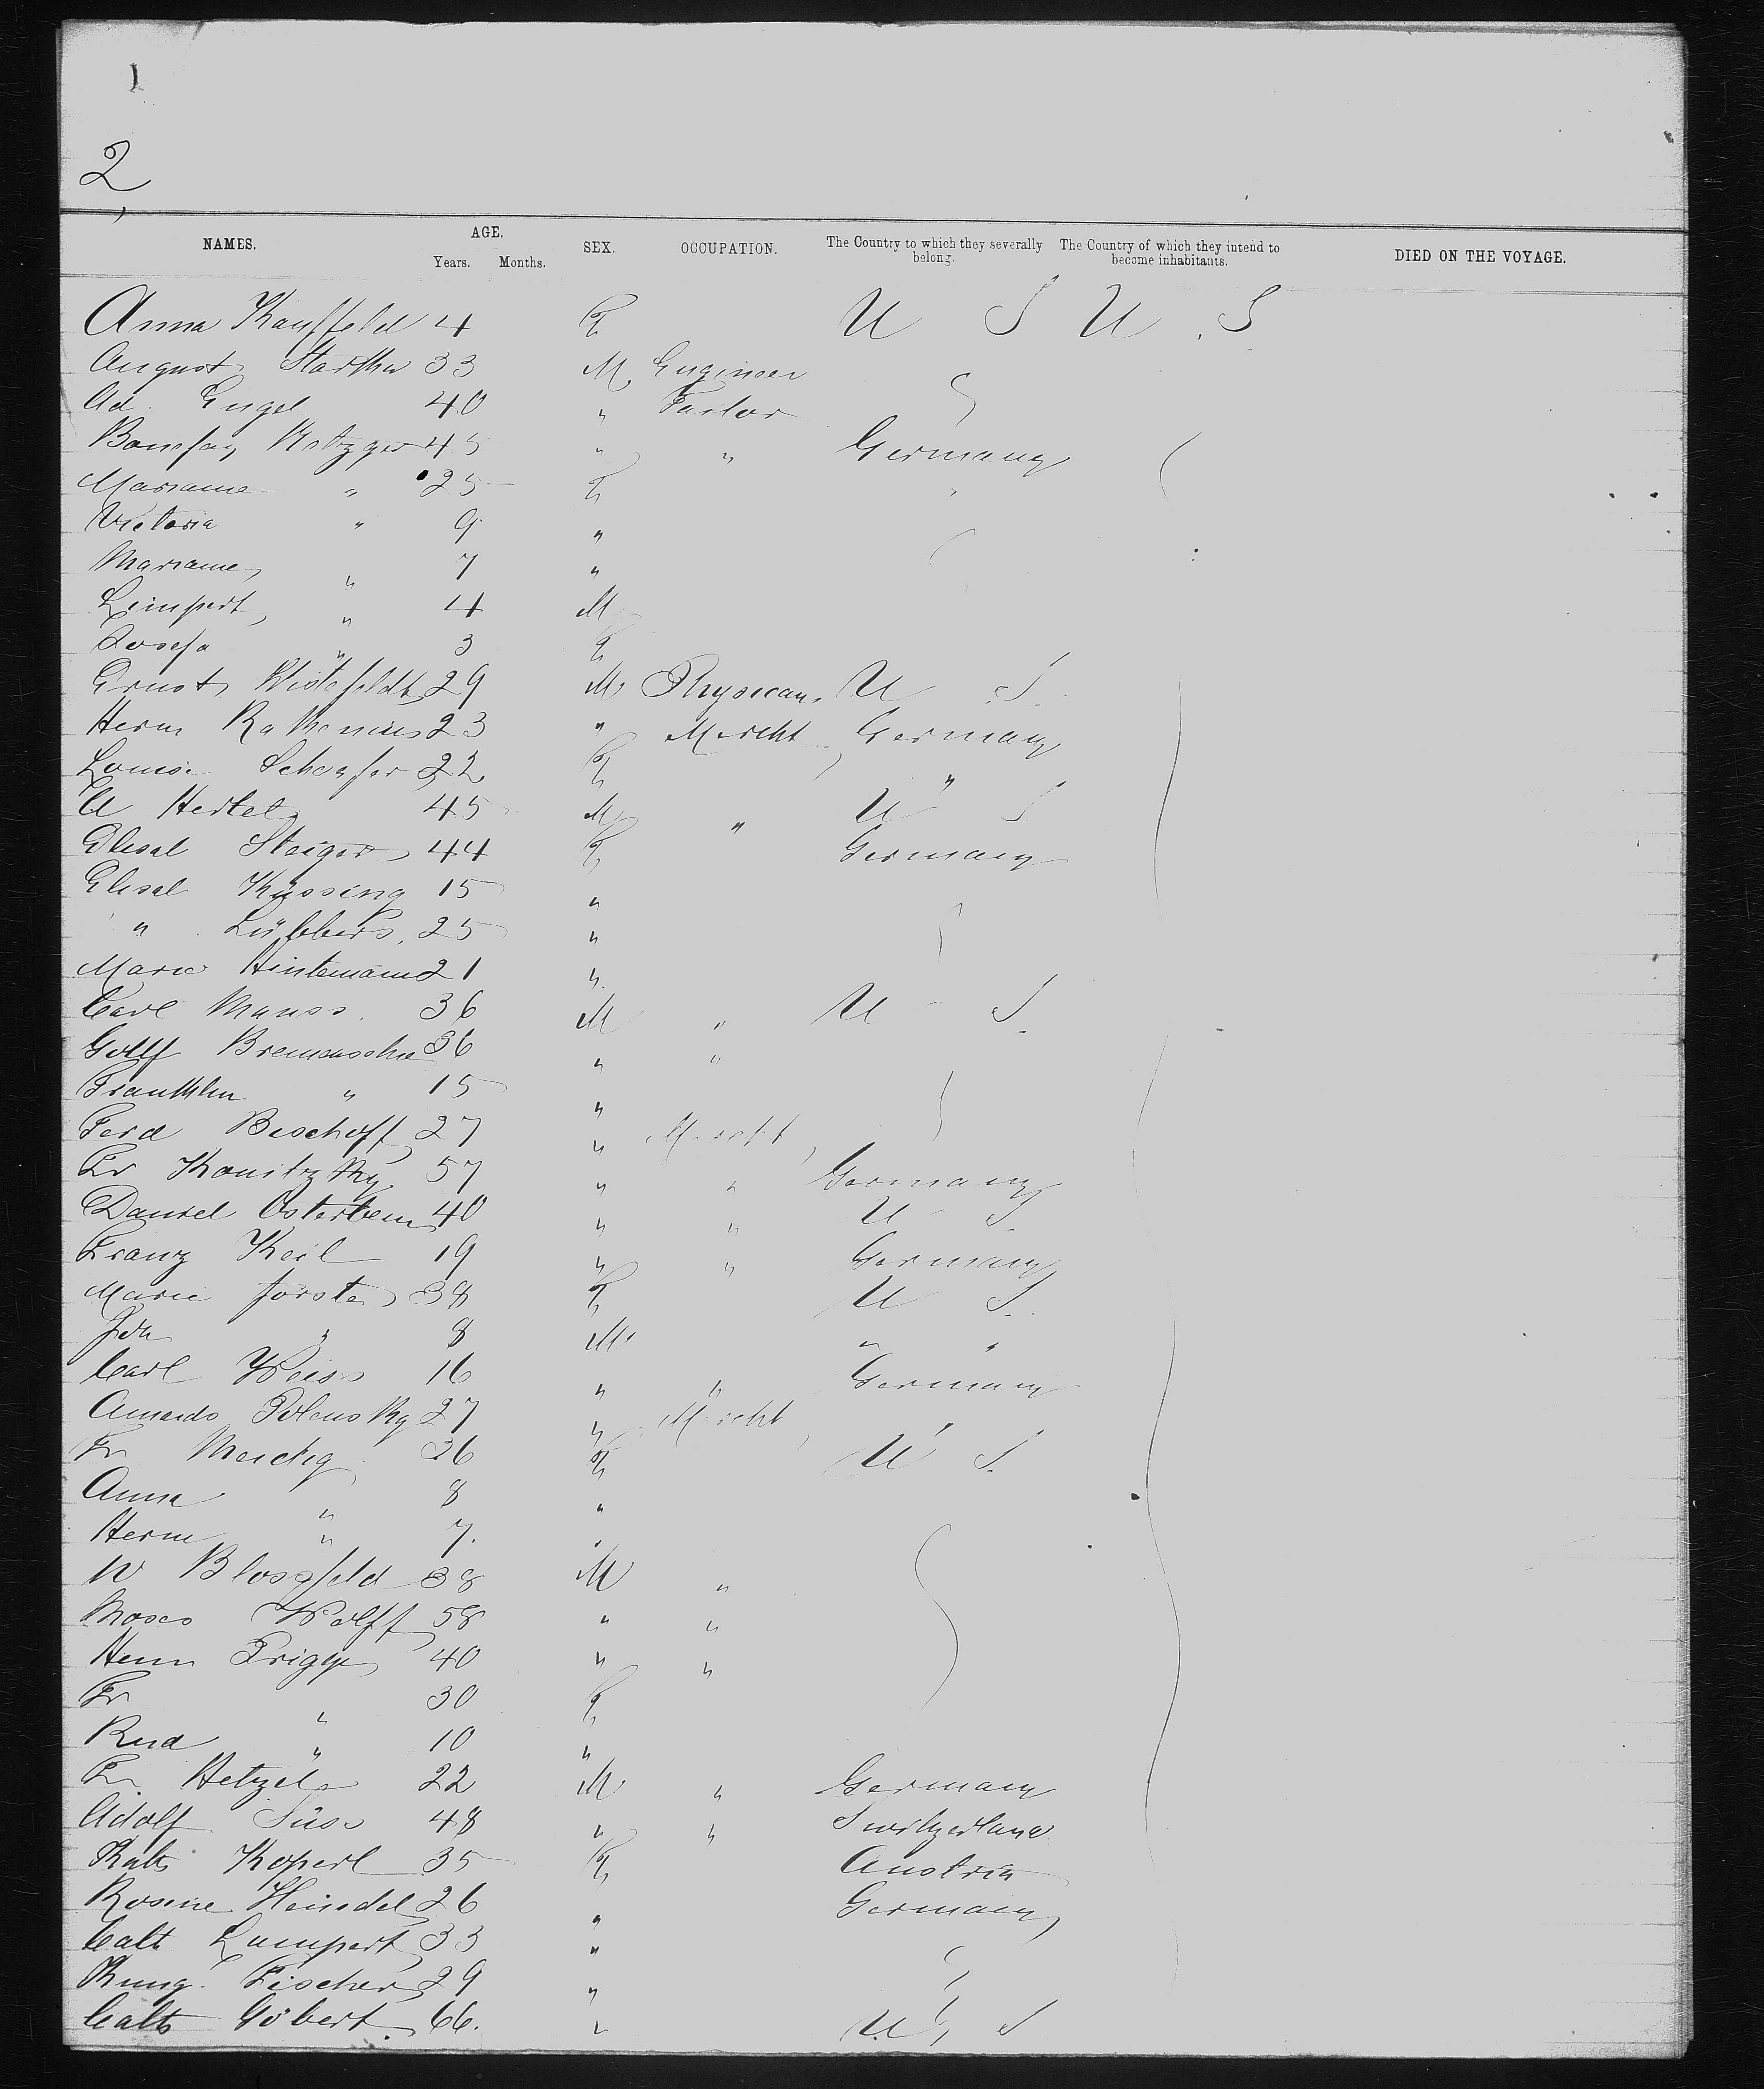 2
NAMES. AGE. Years. Months. SEX. OCCUPATION. The Country to which they severally belong. The Country of which they intend to become inhabitants. DIED ON THE VOYAGE.
Anna Kauffeld 4 F U S U S
August 33 M Engineer
Ad. Engel 40 " Tailor
Metzger 45 " " Germany
Marianne " 25 F
Victoria " 9 "
Marianne " 7 "
Limpert " 4 M
Josefa " 3 F
Ernst 29 M Physician U S
Herm 23 " Mercht Germany
Louise Schaefer 22 F "
A Hertel 45 M " U S
Elisab Steiger 44 F Germany
Elisab Kyssing 15 "
" Lübbers 25 "
Marie Hintemann 21 "
Carl Manss 36 M " U S.
36 " "
Franklin " 15 "
Ferd Bischoff 27 " Mercht
Fr Konitzky 57 " " Germany
Daniel 40 " " U S.
Franz Keil 19 " " Germany
Marie Forster 38 F U S.
" 8 M " "
Carl Weiss 16 " " Germany
Polensky 27 " Mercht "
Fr 36 F U S.
Anna " 8 "
Herm " 7. "
W Blossfeld 38 M "
Moses Wolff 58 " "
Henn Prigge 40 " "
Fr " 30 F
Rud " 10 "
Fr Hetzel 22 M " Germany
Adolf Süss 48 " " Switzerland
Kath Koperl 35 F Austria
Rosine Heindel 26 " Germany
Cath Lumpert 33 "
Kung. Fischer 29 "
Cath Göbert 66. " U S